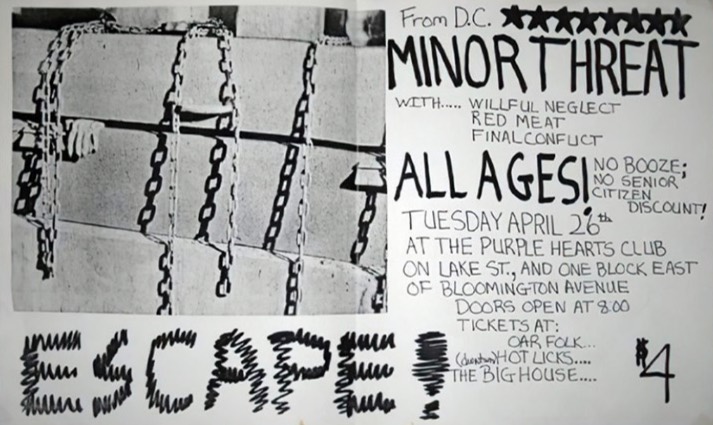 From D.C. ★★★★★★★★
MINOR THREAT
WITH..... WILLFUL NEGLECT
RED MEAT
FINAL CONFLICT
ALL AGES!
NO BOOZE;
NO SENIOR
CITIZEN
DISCOUNT!
TUESDAY APRIL 26th
AT THE PURPLE HEARTS CLUB
ON LAKE ST., AND ONE BLOCK EAST
OF BLOOMINGTON AVENUE
DOORS OPEN AT 8:00
TICKETS AT:
OAR FOLK...
(downtown) HOT LICKS....
THE BIG HOUSE....
$4
ESCAPE!